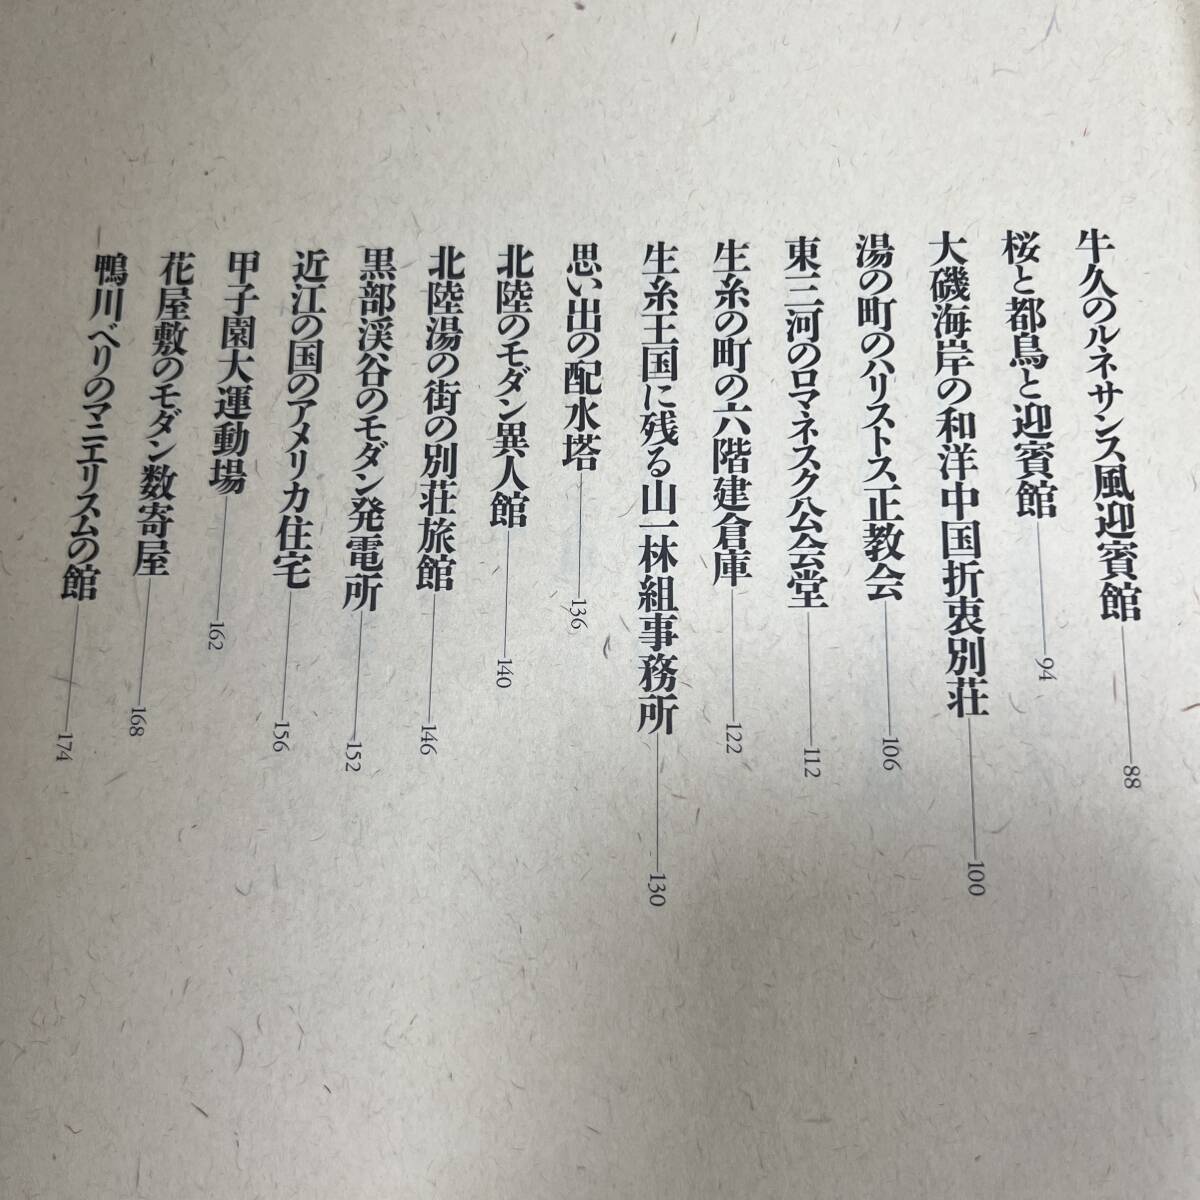 牛久のルネサンス風迎賓館 88
桜と都鳥と迎賓館 94
大磯海岸の和洋中国折衷別荘 100
湯の町のハリストス正教会 106
東三河のロマネスク公会堂 112
生糸の町の六階建倉庫 122
生糸王国に残る山一林組事務所 130
思い出の配水塔 136
北陸のモダン異人館 140
北陸湯の街の別荘旅館 146
黒部渓谷のモダン発電所 152
近江の国のアメリカ住宅 156
甲子園大運動場 162
花屋敷のモダン数寄屋 168
鴨川ベリのマニエリスムの館 174